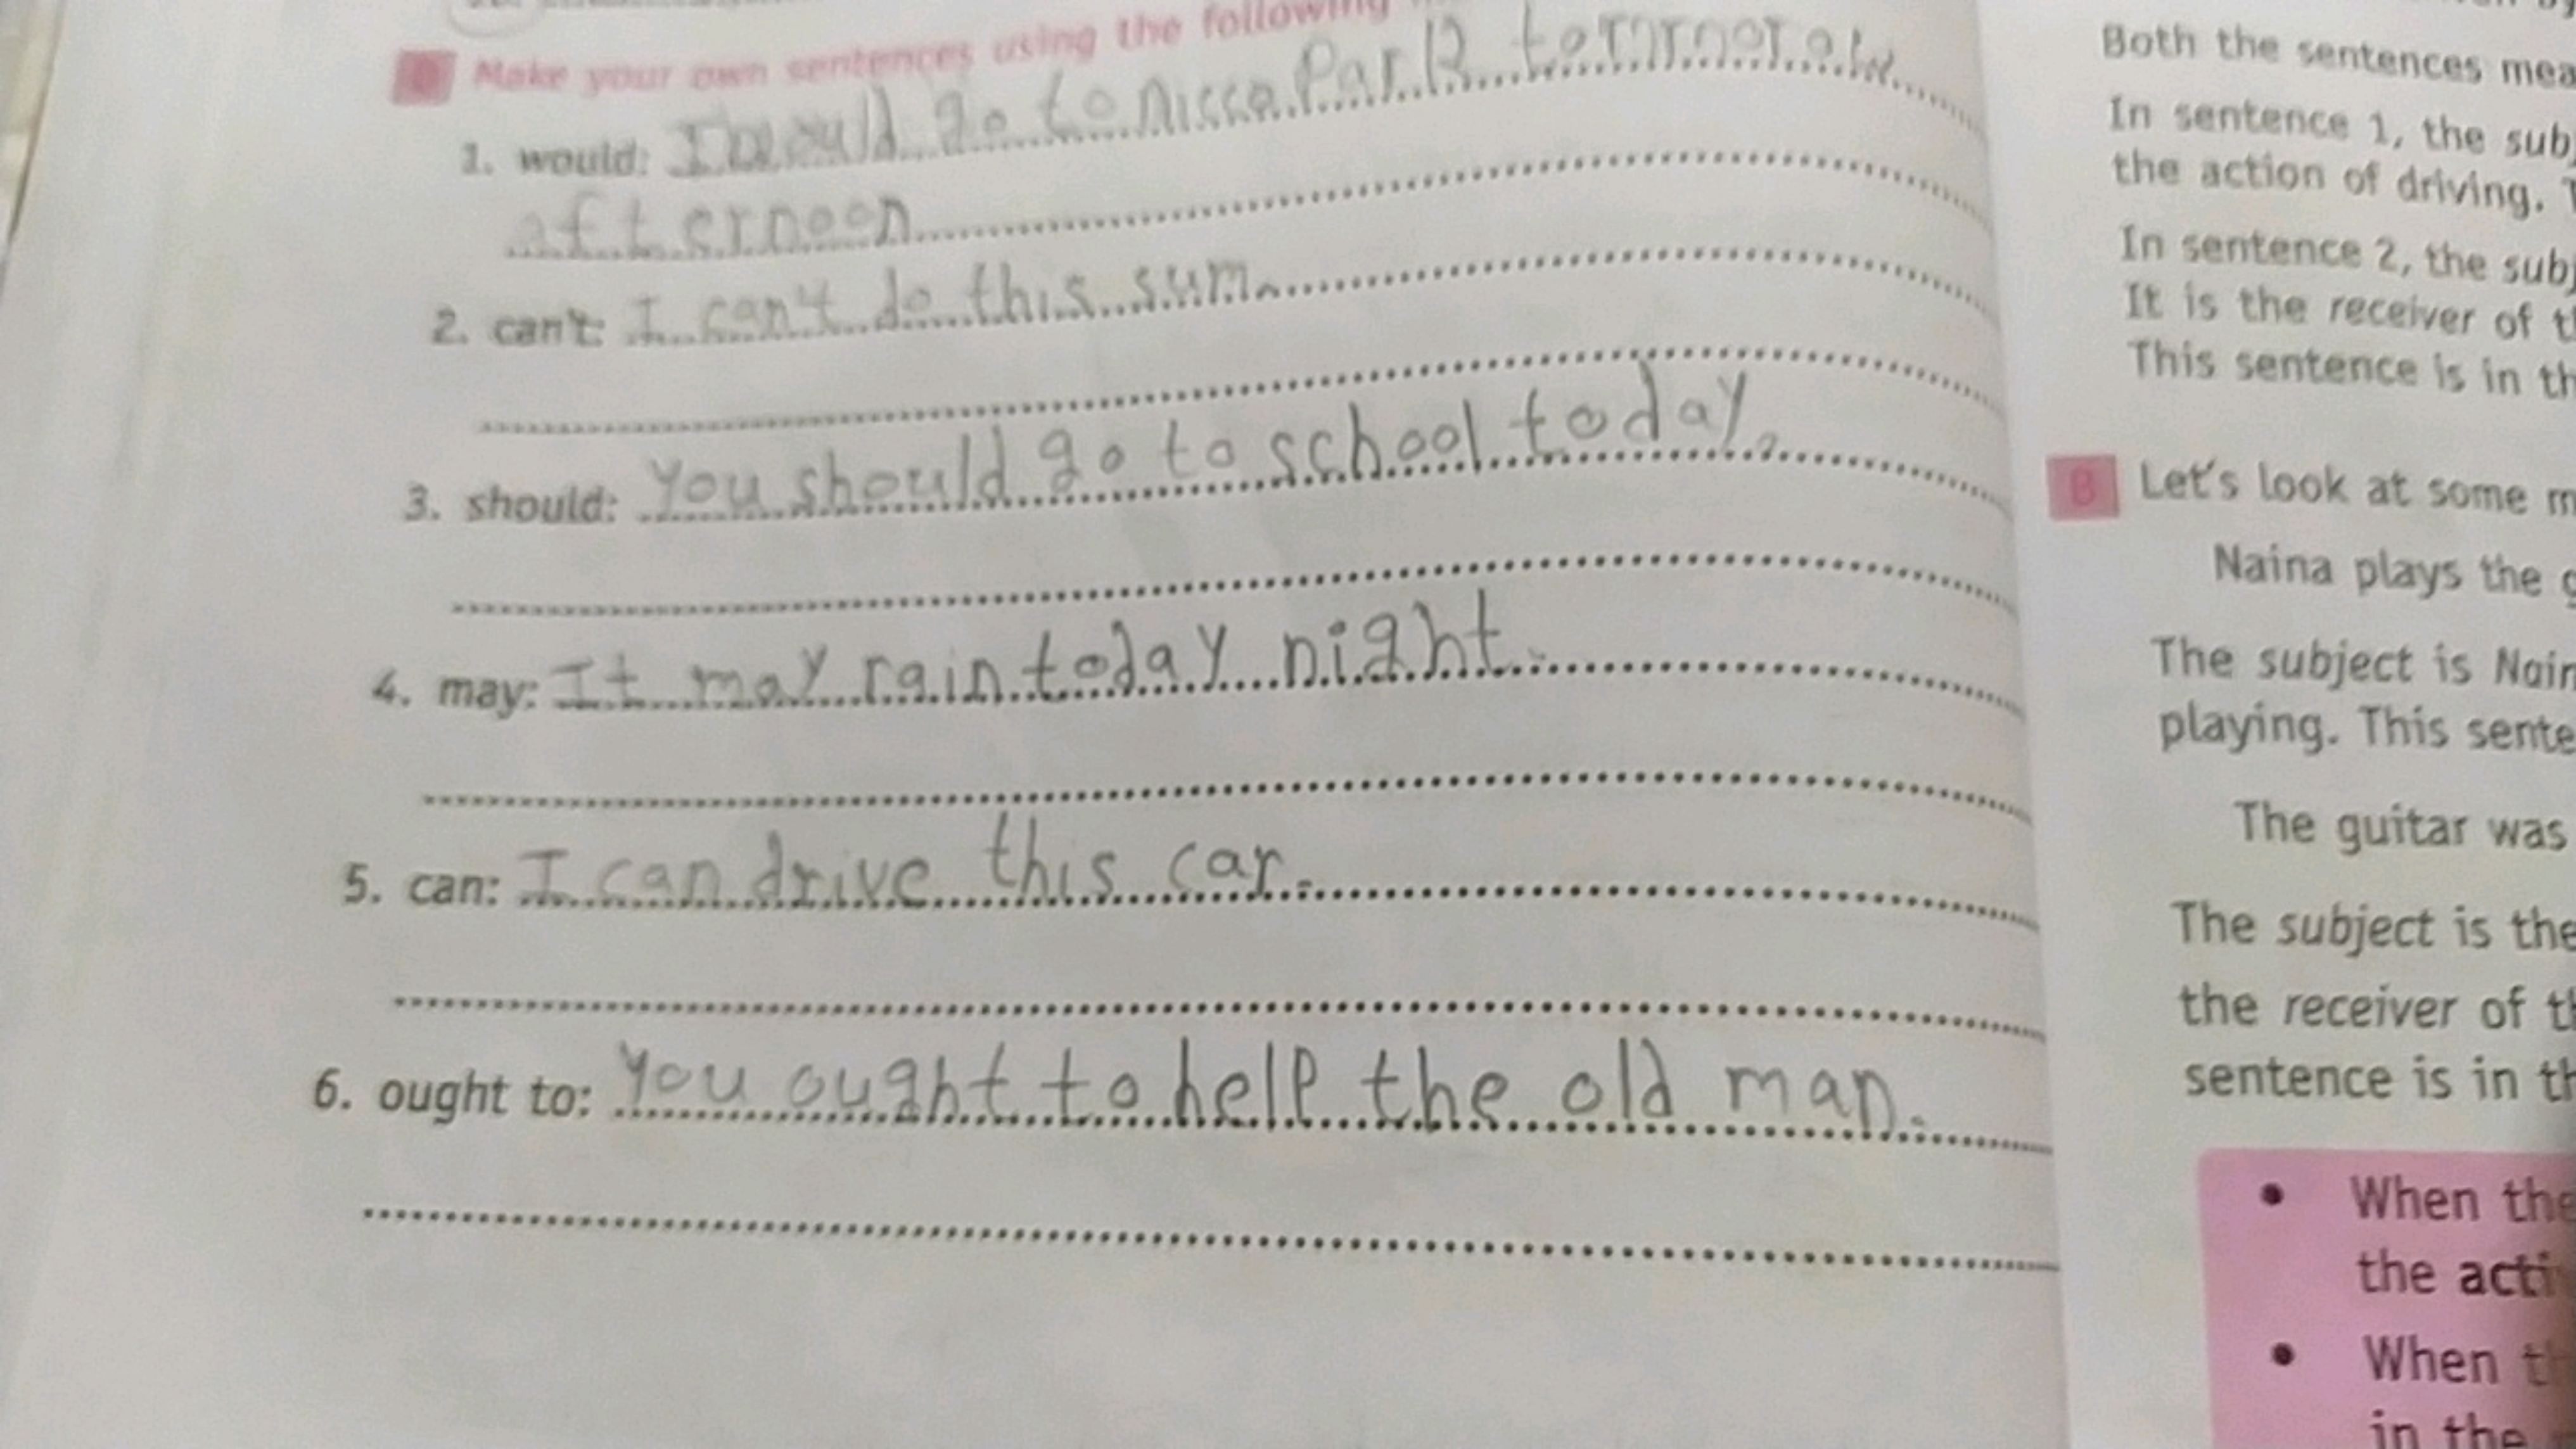 Make your own sentences using the following
1. would: I would go to nicco Park tommorow
afternoon
2. can't: I can't do this sum.
3. should: You should go to school today.
4. may: It may rain today night.
5. can: I can drive this car.
6. ought to: You ought to help the old man.
Both the sentences
In sentence 1, the
the action of driving.
In sentence 2, the
It is the receiver of
This sentence is in
B Let's look at some
Naina plays the
The subject is
playing. This
The guitar was
The subject is
the receiver of
sentence is in
• When
the
• When
in the